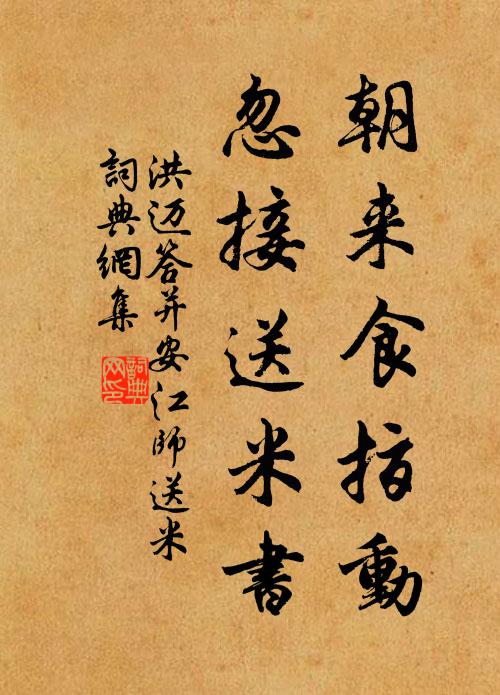 朝来食指動
忽接送米書
洪迈答并安江師送米
詞典網集
詞典网印